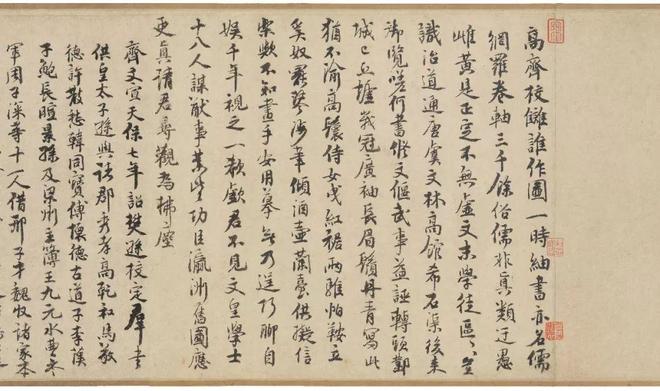 高齊校讎誰作圖一時紬書亦名儒
網羅卷軸三千餘俗儒非真類迂愚
雌黃是正定不無虛文末學徒區〻豈
識治道通唐虞文林高館希石渠後来
御覽嗟何書修文偃武事益誣轉頭鄴
城已丘墟峩冠廣袖長眉鬚丹青寫此
猶不渝高鬟侍女曳紅裾兩騅帕鞍立
奚奴罷琴涉筆傾酒壺蘭臺供擬信
樂歟不知畫手安用摹無乃逞巧聊自
娛千年視之一欷歔君不見文皇學士
十八人謀猷事業皆功臣瀛洲舊圖應
更真請君尋觀為拂塵
齊文宣天保七年詔樊遜校定羣書
供皇太子遜與諸郡秀孝高乾和馬敬
德許散愁韓同寶傅懷德古道子李漢
子鮑長暄景孫及梁州主簿王九元水曹參
軍周子深等十一人借邢子才魏收諸家本